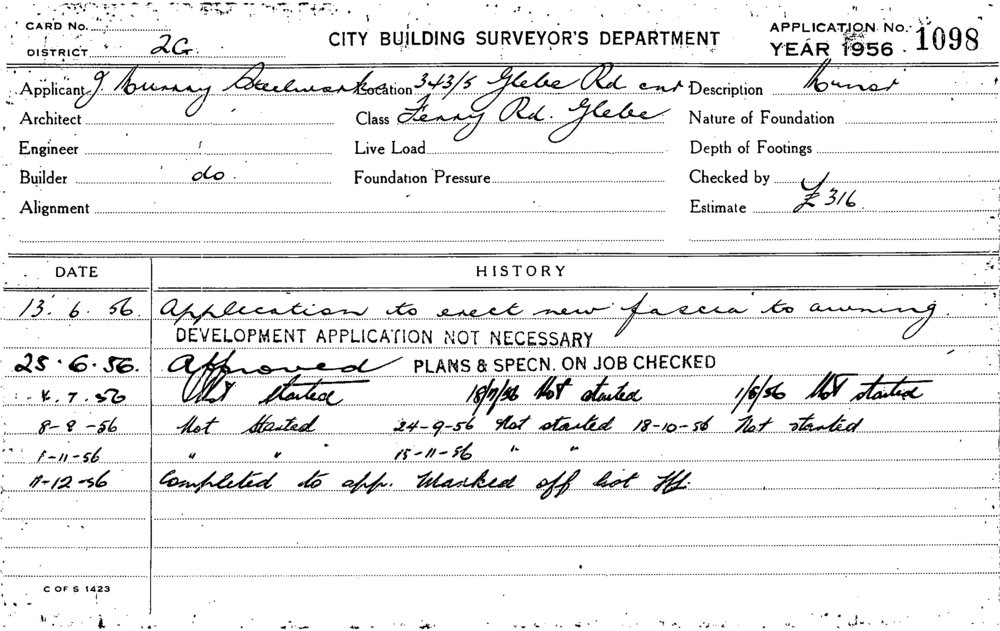 CARD No.
DISTRICT 2G
CITY BUILDING SURVEYOR'S DEPARTMENT
APPLICATION No. 1098
YEAR 1956
Applicant J Murray Location 343/5 Glebe Rd cnr Description Minor
Architect Class Ferry Rd. Glebe Nature of Foundation
Engineer Live Load Depth of Footings
Builder do. Foundation Pressure Checked by
Alignment Estimate £316
DATE HISTORY
13. 6. 56. Application to erect new fascia to awning.
DEVELOPMENT APPLICATION NOT NECESSARY
25.6.56. Approved PLANS & SPECN. ON JOB CHECKED
4.7.56 Not started 18/7/56 Not started 1/8/56 Not started
8-9-56 Not Started 24-9-56 Not started 18-10-56 Not started
1-11-56 " " 15-11-56 " "
11-12-56 Completed to app. Marked off list
C OF S 1423